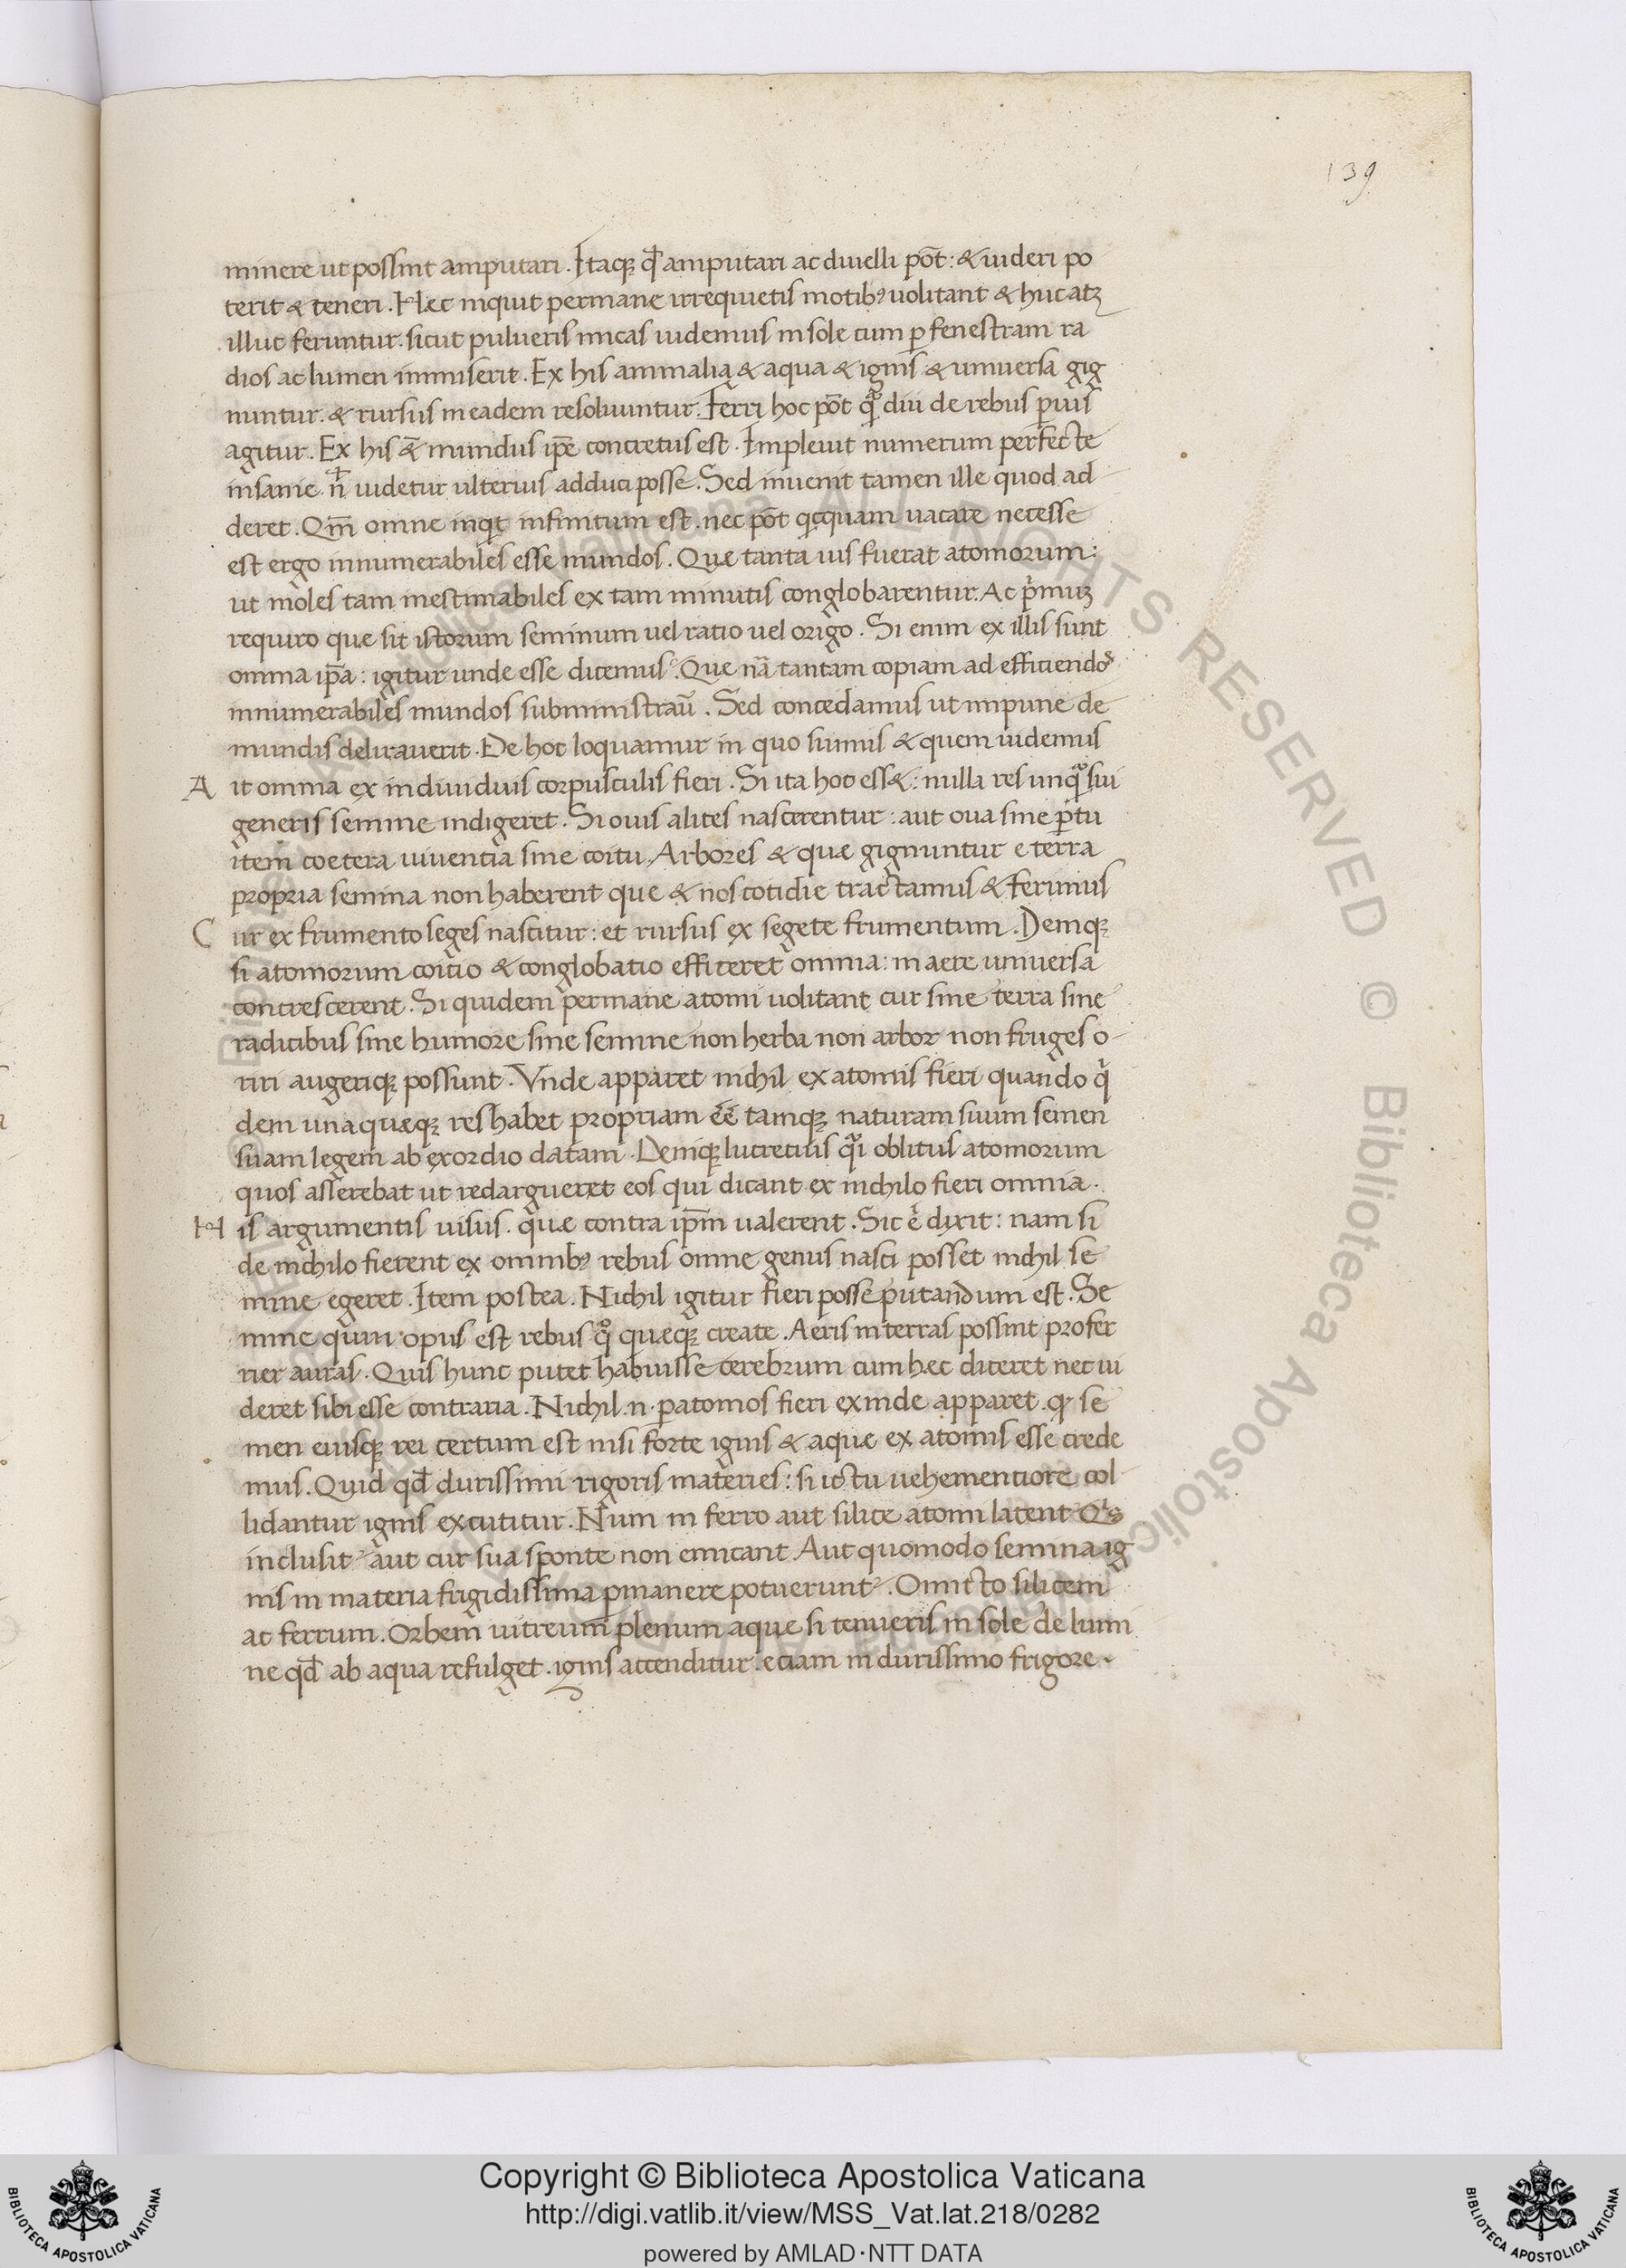 139
minere ut possint amputari. Itaqꝫ qđ amputari ac diuelli pōt: & uideri po
terit & teneri. Hæc inquit per inane irrequietis motibꝰ uolitant & huc atqꝫ
illuc feruntur. sicut pulueris micas uidemus in sole cum ꝑ fenestram ra
dios ac lumen immiserit. Ex his animalia & aqua & ignis & uniuersa gig
nuntur. & rursus in eadem resoluuntur. Ferri hoc pōt qͣdiu de rebus ꝑuis
agitur. Ex his & mundus ip̄e concretus est. Impleuit numerum perfecte
insanie. n̄ uidetur ulterius adduci posse. Sed inuenit tamen ille quod ad
deret. Qm̄ omne inqͥt infinitum est. nec pōt qͥcquam uacare necesse
est ergo innumerabiles esse mundos. Quæ tanta uis fuerat atomorum:
ut moles tam inestimabiles ex tam minutis conglobarentur. Ac pͥmuꝫ
requiro que sit istorum seminum uel ratio uel origo. Si enim ex illis sunt
omnia ip̄a: igitur unde esse dicemus? Que nā tantam copiam ad efficiendoˢ
innumerabiles mundos subministrauͭ. Sed concedamus ut impune de
mundis delirauerit. De hoc loquamur in quo sumus & quem uidemus
A it omnia ex indiuiduis corpusculis fieri. Si ita hoc ess&: nulla res unqͣ sui
generis semine indigeret. Si ouis alites nascerentur: aut oua sine ꝑtu
item coetera uiuentia sine coitu. Arbores & quæ gignuntur e terra
propria semina non haberent que & nos cotidie tractamus & ferimus
C ur ex frumento seges nascitur: et rursus ex segete frumentum. Deniqꝫ
si atomorum coitio & conglobatio efficeret omnia: in aere uniuersa
concrescerent. Si quidem per inane atomi uolitant cur sine terra sine
radicibus sine humore sine semine non herba non arbor non fruges o-
riri augeriqꝫ possunt. Vnde apparet nichil ex atomis fieri quando qͥ
dem unaquæqꝫ res habet propriam c̄tamqꝫ naturam suum semen
suam legem ab exordio datam. Deniqꝫ lucretius qͣi oblitus atomorum
quos asserebat ut redargueret eos qui dicant ex nichilo fieri omnia.
H is argumentis uisus. quæ contra ip̄m ualerent. Sic ē dixit: nam si
de nichilo fierent ex omnibꝰ rebus omne genus nasci posset nichil se
mine egeret. Item postea. Nichil igitur fieri posse putandum est. Se
mine quin opus est rebus qͦ quæqꝫ create. Aeris in terras possint profer
rier auras. Quis hunc putet habuisse cerebrum cum hæc diceret nec ui
deret sibi esse contraria. Nichil .n. ꝑ atomos fieri exinde apparet. qꝛ se
men cuiusqꝫ rei certum est nisi forte ignis & aque ex atomis esse crede
mus. Quid qđ durissimi rigoris materies: si ictu uehementiore col
lidantur ignis excutitur. Num in ferro aut silice atomi latent Qͥs
inclusit? aut cur sua sponte non emicant Aut quomodo semina ig
nis in materia frigidissima ꝑmanere potuerunt?. Omicto silicem
ac ferrum. Orbem uitreum plenum aque si tenueris in sole de lumi
ne qđ ab aqua refulget. ignis accenditur. eciam in durissimo frigore.
Copyright © Biblioteca Apostolica Vaticana
http://digi.vatlib.it/view/MSS_Vat.lat.218/0282
powered by AMLAD·NTT DATA